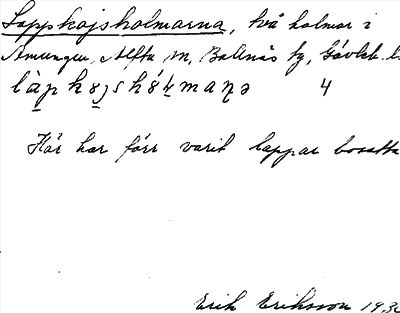 Lappkojsholmarna, två holmar i
Amungen, Alfta sn, Bollnäs tg, Gävleb. l
4
Här har förr varit lappar bosatta
Erik Eriksson 1930